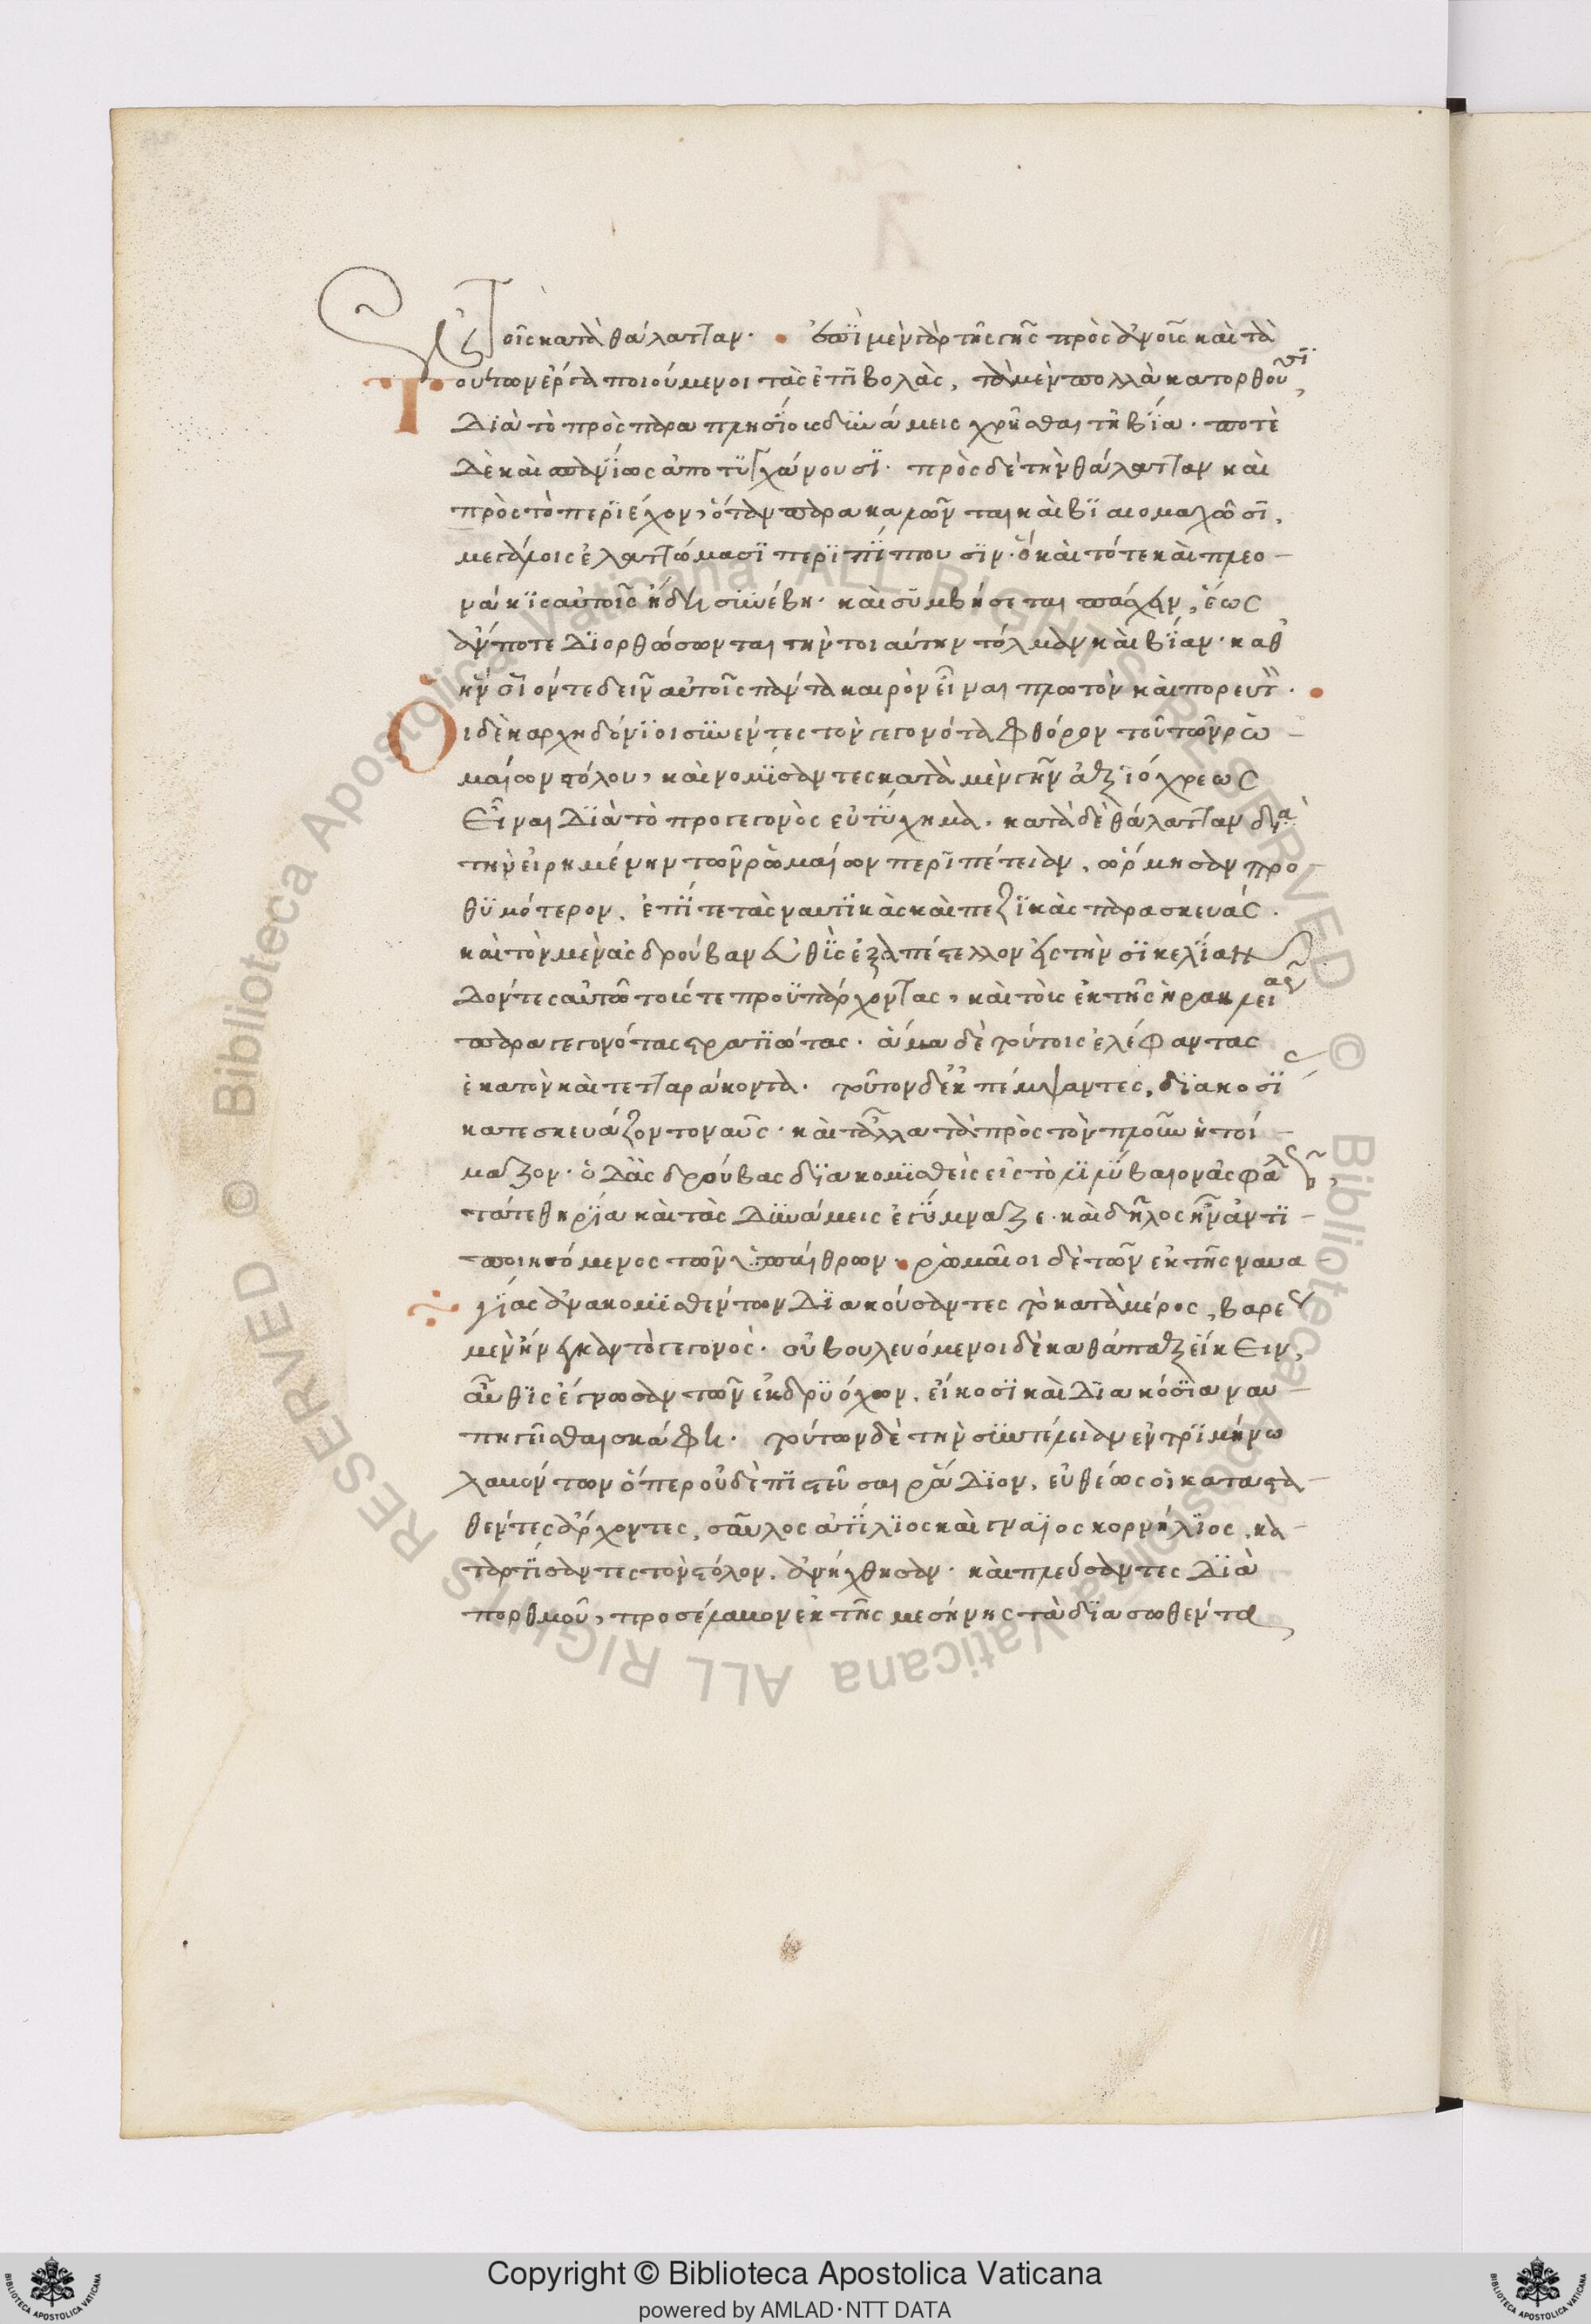 ἐν τοῖς κατὰ θάλατταν. ἐπὶ μὲν γὰρ τῆς γῆς πρὸς ἀν̅ο̅ι̅ς καὶ τὰ
τούτων ἔργα ποιούμενοι τὰς ἐπιβολὰς, τὰ μὲν πολλὰ κατορθοῦσι,
διὰ τὸ πρὸς παραπλησίους δυνάμεις χρῆσθαι τῆ βία. ποτὲ
δὲ καὶ σπανίως ἀποτυγχάνουσι. πρὸς δὲ τὴν θάλατταν καὶ
πρὸς τὸ περιέχον, ὅταν παρακαλῶνται καὶ βιαιομαχῶσι,
μεγάλοις ἐλαττώμασι περιπίπτουσιν. ὃ καὶ τότε καὶ πλεο-
νάκις αὐτοῖς ἤδη συνέβη. καὶ συμβήσεται πάσχειν, ἕως
ἄν ποτε διορθώσωνται τὴν τοιαύτην τόλμαν καὶ βίαν. καθ
ἣν οἴονται δεῖν αὐτοῖς πάντα καιρὸν εἶναι πλωτὸν καὶ πορευτ.
Οἱ δὲ καρχηδόνιοι συνέντες τὸν γεγονότα φθόρον τοῦ τῶν ῥω-
μαίων στόλου, καὶ νομίσαντες κατὰ μὲν γῆν ἀξιόχρεως
εἶναι διὰ τὸ προγεγονὸς εὐτύχημα. κατὰ δὲ θάλατταν διὰ
τὴν εἰρημένην τῶν ῥωμαίων περιπέτειαν, ὥρμησαν προ-
θυμότερον, ἐπί τε τὰς ναυτικὰς καὶ πεζικὰς παρασκευάς.
καὶ τὸν μὲν ἀσδρούβαν εὐθὺς ἐξαπέστελλον εἰς τὴν σικελίαν
δόντες αὐτῶ τούς τε προϋπάρχοντας, καὶ τοὺς ἐκ τῆς ἡρακλείας
παραγεγονότας στρατιώτας. ἅμα δὲ τούτοις ἐλέφαντας
ἑκατὸν καὶ τετταράκοντα. τοῦτον δ' ἐκπέμψαντες, διακοσίας
κατεσκευάζοντο ναῦς. καὶ τἄλλα τὰ πρὸς τὸν πλοῦν ἡτοί-
μαζον. ὁ δ' ἀσδρούβας διακομισθεὶς εἰς τὸ λιλύβαιον ἀσφαλῶς,
τά τε θηρία καὶ τὰς δυνάμεις ἐγύμναζε. καὶ δῆλος ἦν ἀντι-
ποιησόμενος τῶν ὑπαίθρων. ῥωμαῖοι δὲ τῶν ἐκ τῆς ναυα-
γίας ἀνακομισθέντων διακούσαντες τὸ κατὰ μέρος, βαρέως
μὲν ἤνεγκαν τὸ γεγονός. οὐ βουλευόμενοι δὲ καθάπαξ εἴκειν,
αὖθις ἔγνωσαν τῶν ἐκ δρυόχων, εἴκοσι καὶ διακόσια ναυ-
πηγεῖσθαι σκάφη. τούτων δὲ τὴν συντέλειαν ἐν τριμήνω
λαβόντων ὅπερ οὐδὲ πιστεῦσαι ῥάδιον, εὐθέως οἱ καταστα-
θέντες ἄρχοντες, σαῦλος ἀτίλιος καὶ γναῖος κορνήλιος, κα-
ταρτίσαντες τὸν στόλον, ἀνήχθησαν. καὶ πλεύσαντες διὰ
πορθμοῦ, προσέλαβον ἐκ τῆς μεσήνης τὰ διασωθέντα
Copyright © Biblioteca Apostolica Vaticana
powered by AMLAD·NTT DATA
© Biblioteca Apostolica Vaticana ALL RIGHTS RESERVED © Biblioteca Apostolica Vaticana ALL RIGHTS RESERVED